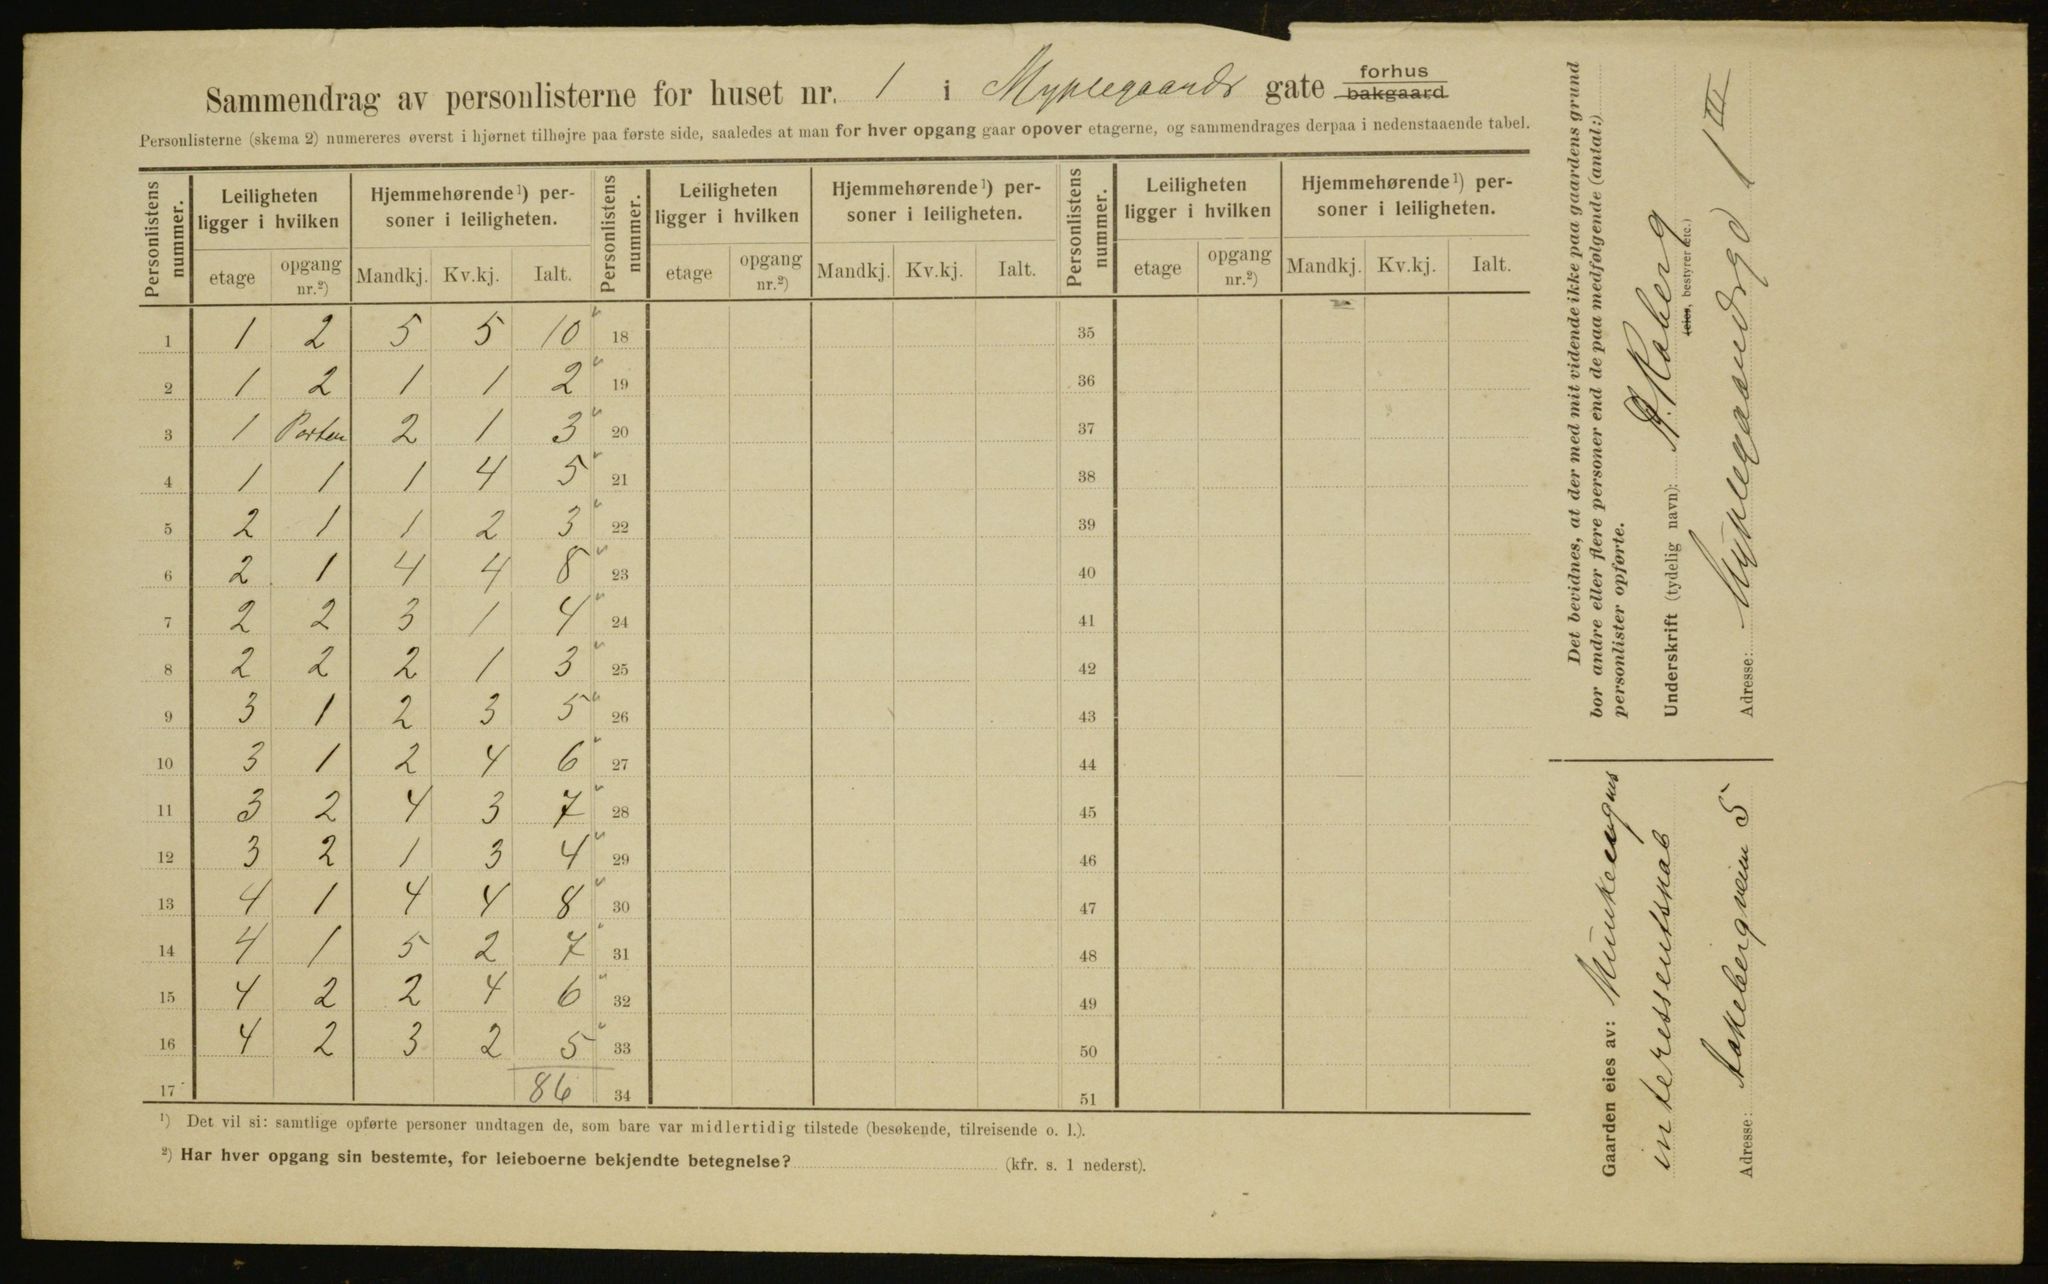 Sammendrag av personlisterne for huset nr. 1 i Myklegaards gate forhus bakgaard
Personlisterne (skema 2) numereres øverst i hjørnet tilhøjre paa første side, saaledes at man for hver opgang gaar opover etagerne, og sammendrages derpaa i nedenstaaende tabel.
Personlistens nummer. Leiligheten ligger i hvilken Hjemmehørende ¹) personer i leiligheten. Personlistens nummer. Leiligheten ligger i hvilken Hjemmehørende ¹) personer i leiligheten. Personlistens nummer. Leiligheten ligger i hvilken Hjemmehørende ¹) personer i leiligheten.
etage opgang nr.²) Mandkj. Kv.kj. Ialt. etage opgang nr.²) Mandkj. Kv.kj. Ialt. etage opgang nr.²) Mandkj. Kv.kj. Ialt.
1 1 2 5 5 10 18 35
2 1 2 1 1 2 19 36
3 1 Porten 2 1 3 20 37
4 1 1 1 4 5 21 38
5 2 1 1 2 3 22 39
6 2 1 4 4 8 23 40
7 2 2 3 1 4 24 41
8 2 2 2 1 3 25 42
9 3 1 2 3 5 26 43
10 3 1 2 4 6 27 44
11 3 2 4 3 7 28 45
12 3 2 1 3 4 29 46
13 4 1 4 4 8 30 47
14 4 1 5 2 7 31 48
15 4 2 2 4 6 32 49
16 4 2 3 2 5 33 50
17 86 34 51
¹) Det vil si: samtlige opførte personer undtagen de, som bare var midlertidig tilstede (besøkende, tilreisende o. l.).
²) Har hver opgang sin bestemte, for leieboerne bekjendte betegnelse? (kfr. s. 1 nederst).
Det bevidnes, at der med mit vidende ikke paa gaardens grund
bor andre eller flere personer end de paa medfølgende (antal:)
personlister opførte.
Underskrift (tydelig navn): Roberg
(eies, bestyrer etc.)
Adresse: Myklegaardsgd 1 III
Gaarden eies av: Munkeengens
interessentskab
Adresse: Aakebergveien 5